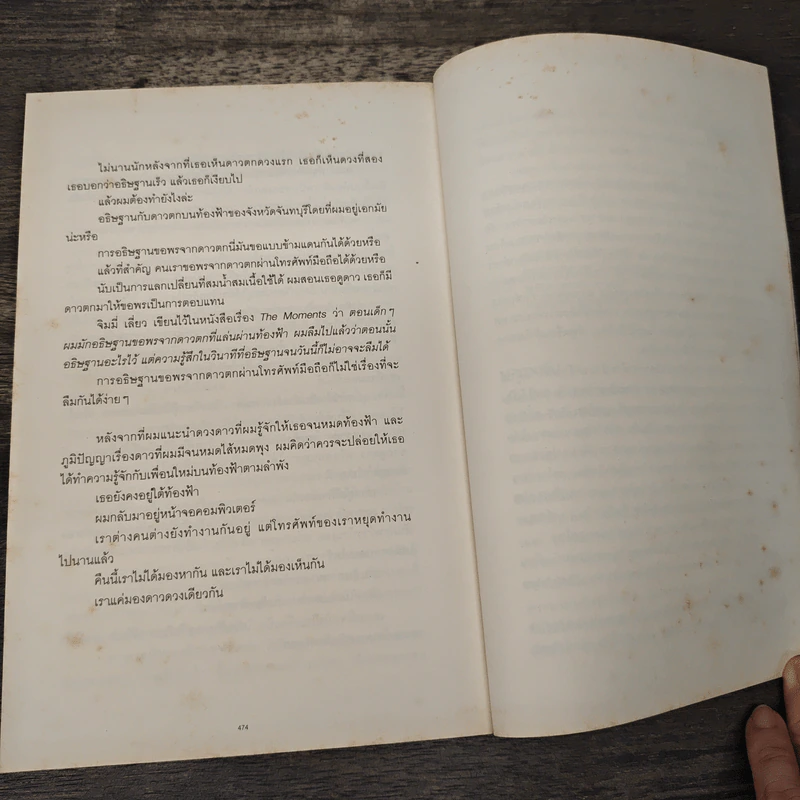 ไม่นานนักหลังจากที่เธอเห็นดาวตกดวงแรก เธอก็เห็นดวงที่สอง
เธอบอกว่าอธิษฐานเร็ว แล้วเธอก็เงียบไป
แล้วผมต้องทำยังไงล่ะ
อธิษฐานกับดาวตกบนท้องฟ้าของจังหวัดจันทบุรีโดยที่ผมอยู่เอกมัย
น่ะหรือ
การอธิษฐานขอพรจากดาวตกนี่มันขอแบบข้ามแดนกันได้ด้วยหรือ
แล้วที่สำคัญ คนเราขอพรจากดาวตกผ่านโทรศัพท์มือถือได้ด้วยหรือ
นับเป็นการแลกเปลี่ยนที่สมน้ำสมเนื้อใช้ได้ ผมสอนเธอดูดาว เธอก็มี
ดาวตกมาให้ขอพรเป็นการตอบแทน
จิมมี่ เลี่ยว เขียนไว้ในหนังสือเรื่อง The Moments ว่า ตอนเด็กๆ
ผมมักอธิษฐานขอพรจากดาวตกที่แล่นผ่านท้องฟ้า ผมลืมไปแล้วว่าตอนนั้น
อธิษฐานอะไรไว้ แต่ความรู้สึกในวินาทีที่อธิษฐานจนวันนี้ก็ไม่อาจจะลืมได้
การอธิษฐานขอพรจากดาวตกผ่านโทรศัพท์มือถือก็ไม่ใช่เรื่องที่จะ
ลืมกันได้ง่ายๆ
หลังจากที่ผมแนะนำดวงดาวที่ผมรู้จักให้เธอจนหมดท้องฟ้า และ
ภูมิปัญญาเรื่องดาวที่ผมมีจนหมดไส้หมดพุง ผมคิดว่าควรจะปล่อยให้เธอ
ได้ทำความรู้จักกับเพื่อนใหม่บนท้องฟ้าตามลำพัง
เธอยังคงอยู่ใต้ท้องฟ้า
ผมกลับมาอยู่หน้าจอคอมพิวเตอร์
เราต่างคนต่างยังทำงานกันอยู่ แต่โทรศัพท์ของเราหยุดทำงาน
ไปนานแล้ว
คืนนี้เราไม่ได้มองหากัน และเราไม่ได้มองเห็นกัน
เราแค่มองดาวดวงเดียวกัน
474